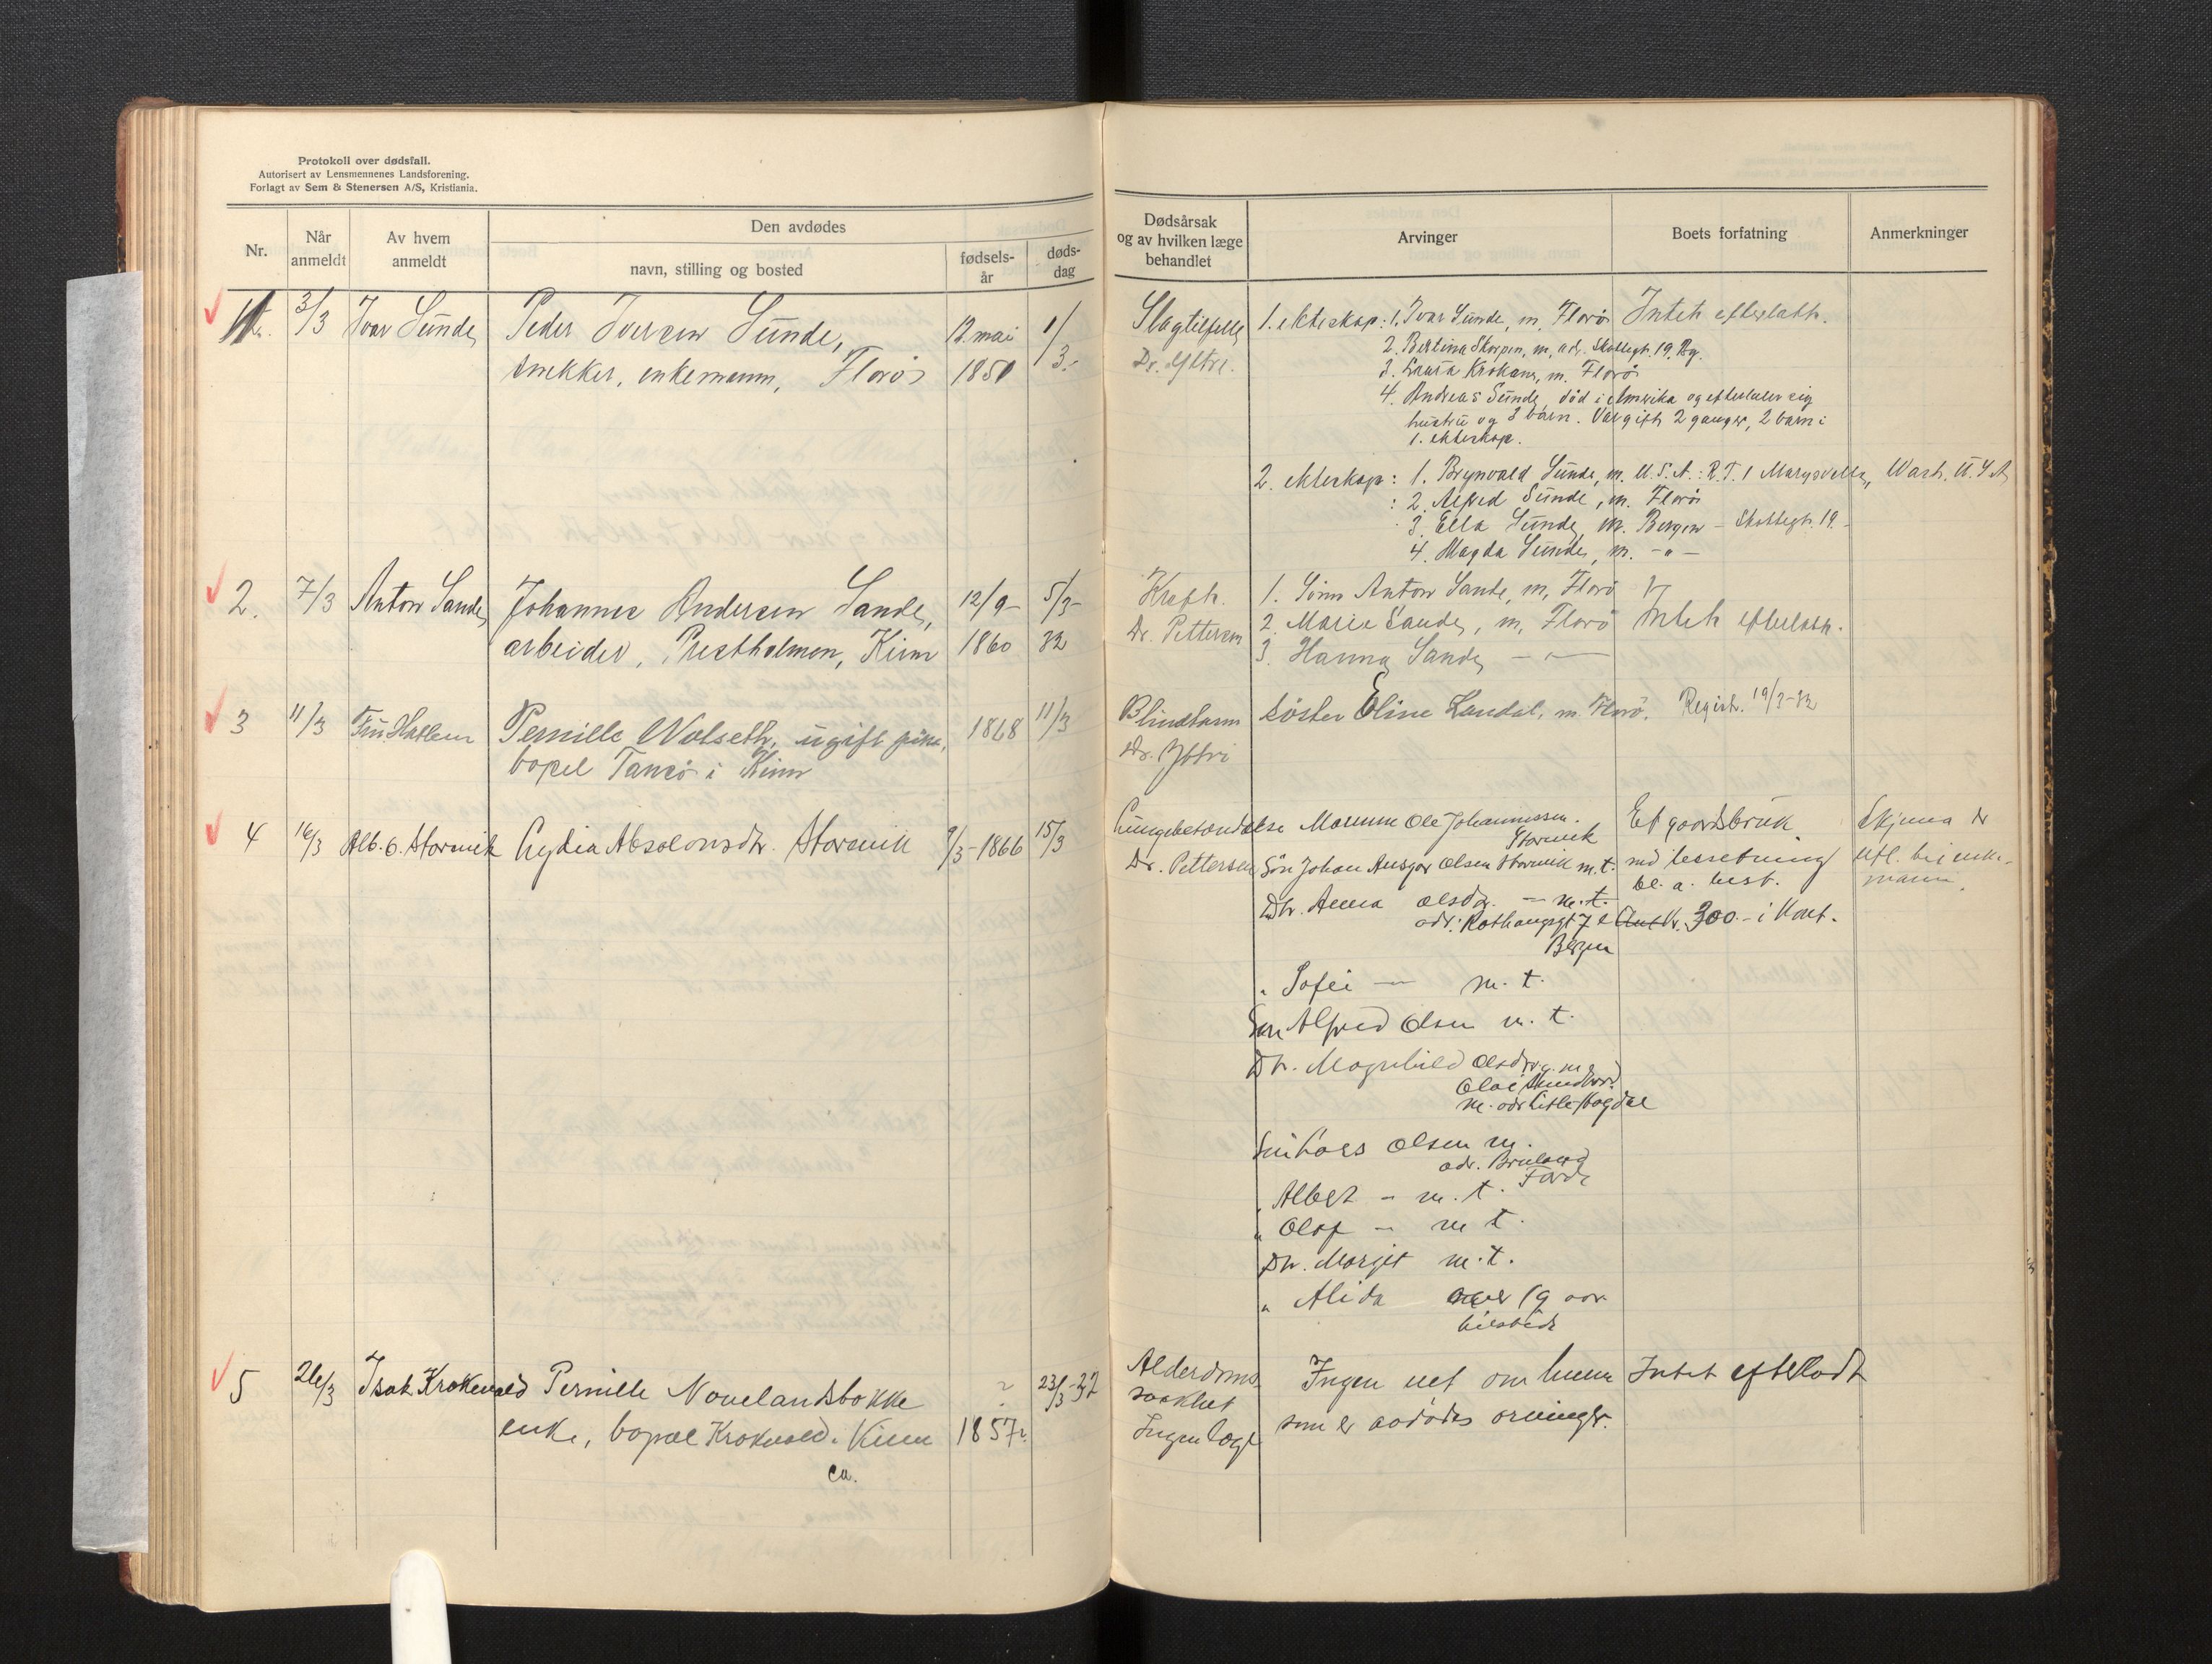 Protokoll over dødsfall.
Autorisert av Lensmennenes Landsforening.
Forlagt av Sem & Stenersen A/S, Kristiania.
Nr.
Når anmeldt
Av hvem anmeldt
Den avdødes
navn, stilling og bosted
fødsels-
år
døds-
dag
Dødsårsak
og av hvilken læge
behandlet
Arvinger
Boets forfatning
Anmerkninger
3/3 Ivar Sunde, Peder Iversen Sunde, 12 mai 1/3
snekker, enkemann, Florø 1850
Slagtilfelle
Dr. Ytre.
1. ekteskap: 1. Ivar Sunde, m, Florø
2. Bertina Skorpen, m, adr. Skottegt. 19, Bg.
3. Laura Krokane, m. Florø
4. Andreas Sunde, død i Amerika og efterlater sig
hustru og 3 barn. Var gift 2 ganger, 2 barn i
1. ekteskap.
Intet efterlatt.
2. ekteskap: 1. Brynvald Sunde, m. U.S.A.: R.T. 1 Marysville, Wash. U.S.A
: 2. Alfred Sunde, m. Florø
3. Ella Sunde, m. Bergen – Skottegt. 19.-
4. Magda Sunde, m. -"-
2. 7/3 Anton Sande, Johannes Andersen Sande, 12/9- 5/3-
arbeider, Prestholmen, Kinn 1860 32
Kreft.
Dr. Pettersen
1. Sønn Anton Sande, m, Florø
2. Marie Sande, m, Florø
3. Hanna Sande, -"-
Intet efterlatt.
3 11/3 Fru Hatlem Pernille Nolseth, ugift pike, 1868 11/3
bopel Tansø i Kinn
Blindtarm
Dr. Ytre
søster Eline Landal, m. Florø. Registr. 19/3-32
4 16/3 Alb. O. Storevik Lydia Absalonsdtr. Storevik 9/3-1866 15/3
Lungebetændelse
Dr. Pettersen
Mannen Ole Johannessen
Storevik
Søn Johan Ansgar Olsen Storevik m.t.
Dtr. Anna Olsdtr. — m.t.
adr:
Bergen
" Sofie — m. t.
Søn Alfred Olsen m. t.
Dtr. Magnhild Olsdtr g. m
m. adr
Søn Lars Olsen m.
adr. Bruland
Førde
" Albert - m. t.
" Olaf - m t.
Dtr. Margit m.t.
" Alida over 19 aar
Et gaardsbruk
med besetning
bl. a. hest.
Kr. 300.- i Kont.
Skjema
utl. til enke-
mann.
5 26/3 Isak Krokevald Pernille Novelandsbakke ? 23/3-32
enke, bopæl Krokvald i Kinn 1857?
ca.
Alderdoms-
svakhet
Ingen læge
Ingen vet om hvem
som er avdødes arvinger.
Intet efterladt